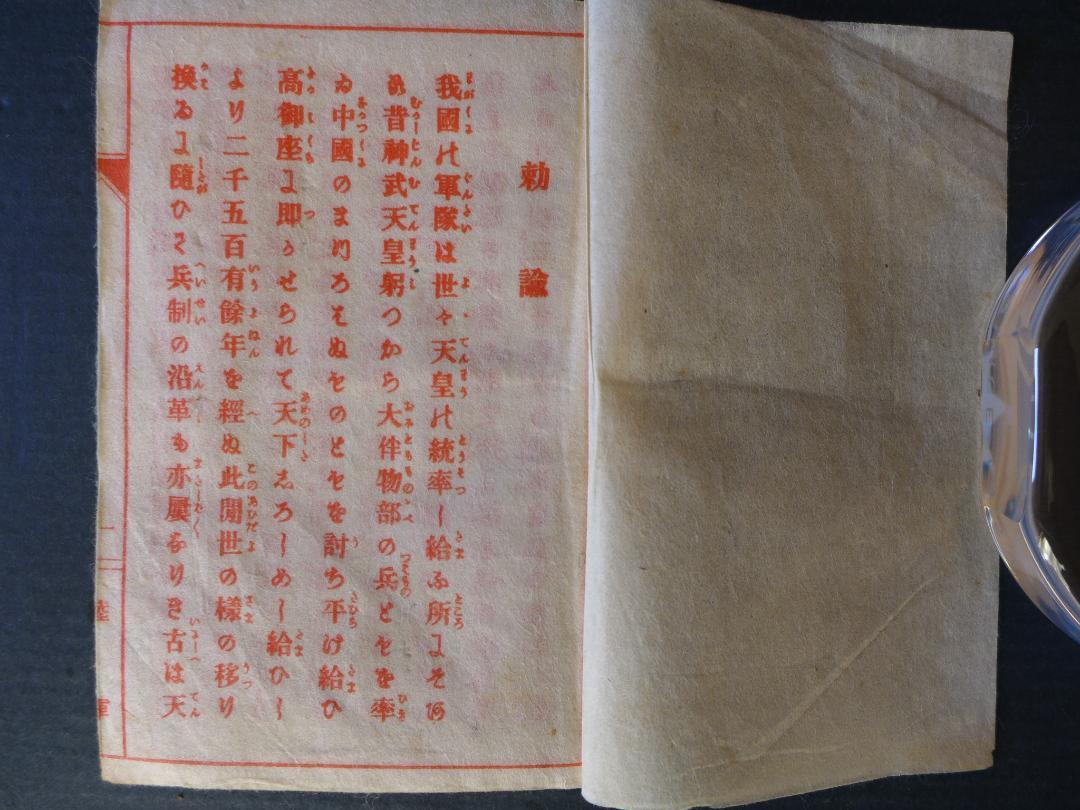 勅諭
我國の軍隊は世々天皇の統率し給ふ所にそあ
る昔神武天皇躬つから大伴物部の兵ともを率
ゐ中國のまつろはぬものともを討ち平け給ひ
高御座に即かせられて天下しろしめし給ひし
より二千五百有餘年を經ぬ此間世の樣の移り
換るに隨ひて兵制の沿革も亦屢なりき古は天
一
陸軍